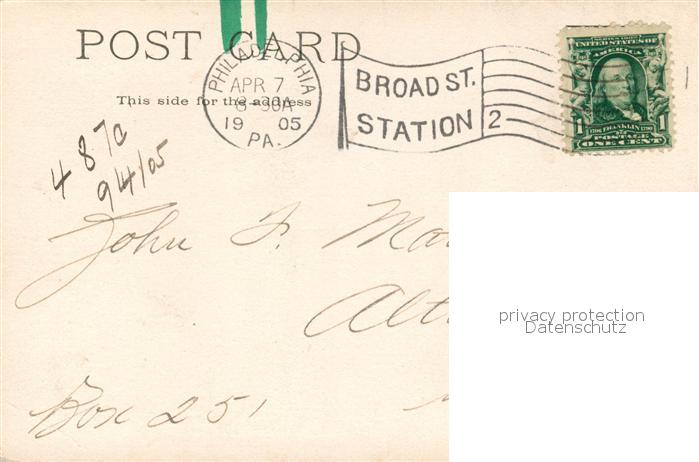 POST CARD
This side for the address
PHILADELPHIA
APR 7
8-30A
19 05
PA.
BROAD ST.
STATION 2
SERIES 1902
UNITED STATES OF AMERICA
1 1706 FRANKLIN 1790 1
POSTAGE
ONE CENT
487c
94105
John F.
Box 251
privacy protection
Datenschutz